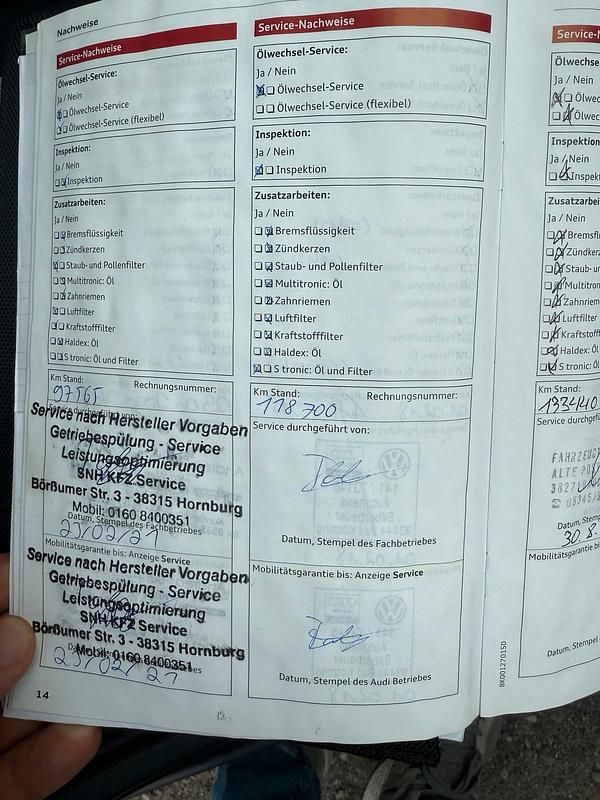 Nachweise
Service-Nachweise
Ölwechsel-Service:
Ja / Nein
Ölwechsel-Service
Ölwechsel-Service (flexibel)
Inspektion:
Ja / Nein
Inspektion
Zusatzarbeiten:
Ja / Nein
Bremsflüssigkeit
Zündkerzen
Staub- und Pollenfilter
Multitronic: Öl
Zahnriemen
Luftfilter
Kraftstofffilter
Haldex: Öl
S tronic: Öl und Filter
Km Stand: Rechnungsnummer:
97565
Service durchgeführt von:
Service nach Hersteller Vorgaben
Getriebespülung - Service
Leistungsoptimierung
SNH KFZ Service
Börßumer Str. 3 - 38315 Hornburg
Mobil: 0160 8400351
Datum, Stempel des Fachbetriebes
23/02/21
Mobilitätsgarantie bis: Anzeige Service
Service nach Hersteller Vorgaben
Getriebespülung - Service
Leistungsoptimierung
SNH KFZ Service
Börßumer Str. 3 - 38315 Hornburg
Mobil: 0160 8400351
23/02/21
14
Service-Nachweise
Ölwechsel-Service:
Ja / Nein
Ölwechsel-Service
Ölwechsel-Service (flexibel)
Inspektion:
Ja / Nein
Inspektion
Zusatzarbeiten:
Ja / Nein
Bremsflüssigkeit
Zündkerzen
Staub- und Pollenfilter
Multitronic: Öl
Zahnriemen
Luftfilter
Kraftstofffilter
Haldex: Öl
S tronic: Öl und Filter
Km Stand: Rechnungsnummer:
118 700
Service durchgeführt von:
Datum, Stempel des Fachbetriebes
Mobilitätsgarantie bis: Anzeige Service
Datum, Stempel des Audi Betriebes
8K0012701SD
Service-N
Ölwechsel-Se
Ja / Nein
Ölwec
Ölwec
Inspektion:
Ja / Nein
Inspek
Zusatzarbei
Ja / Nein
Bremsfl
Zündkerz
Staub- u
Multitron
Zahnriem
Luftfilter
Kraftstof
Haldex: Öl
S tronic: Ö
Km Stand:
Service durchgefü
FAHRZEUGT
ALTE PO
Datum, Stem
30.8.
Mobilitätsgarantie bis
Datum, Stempel